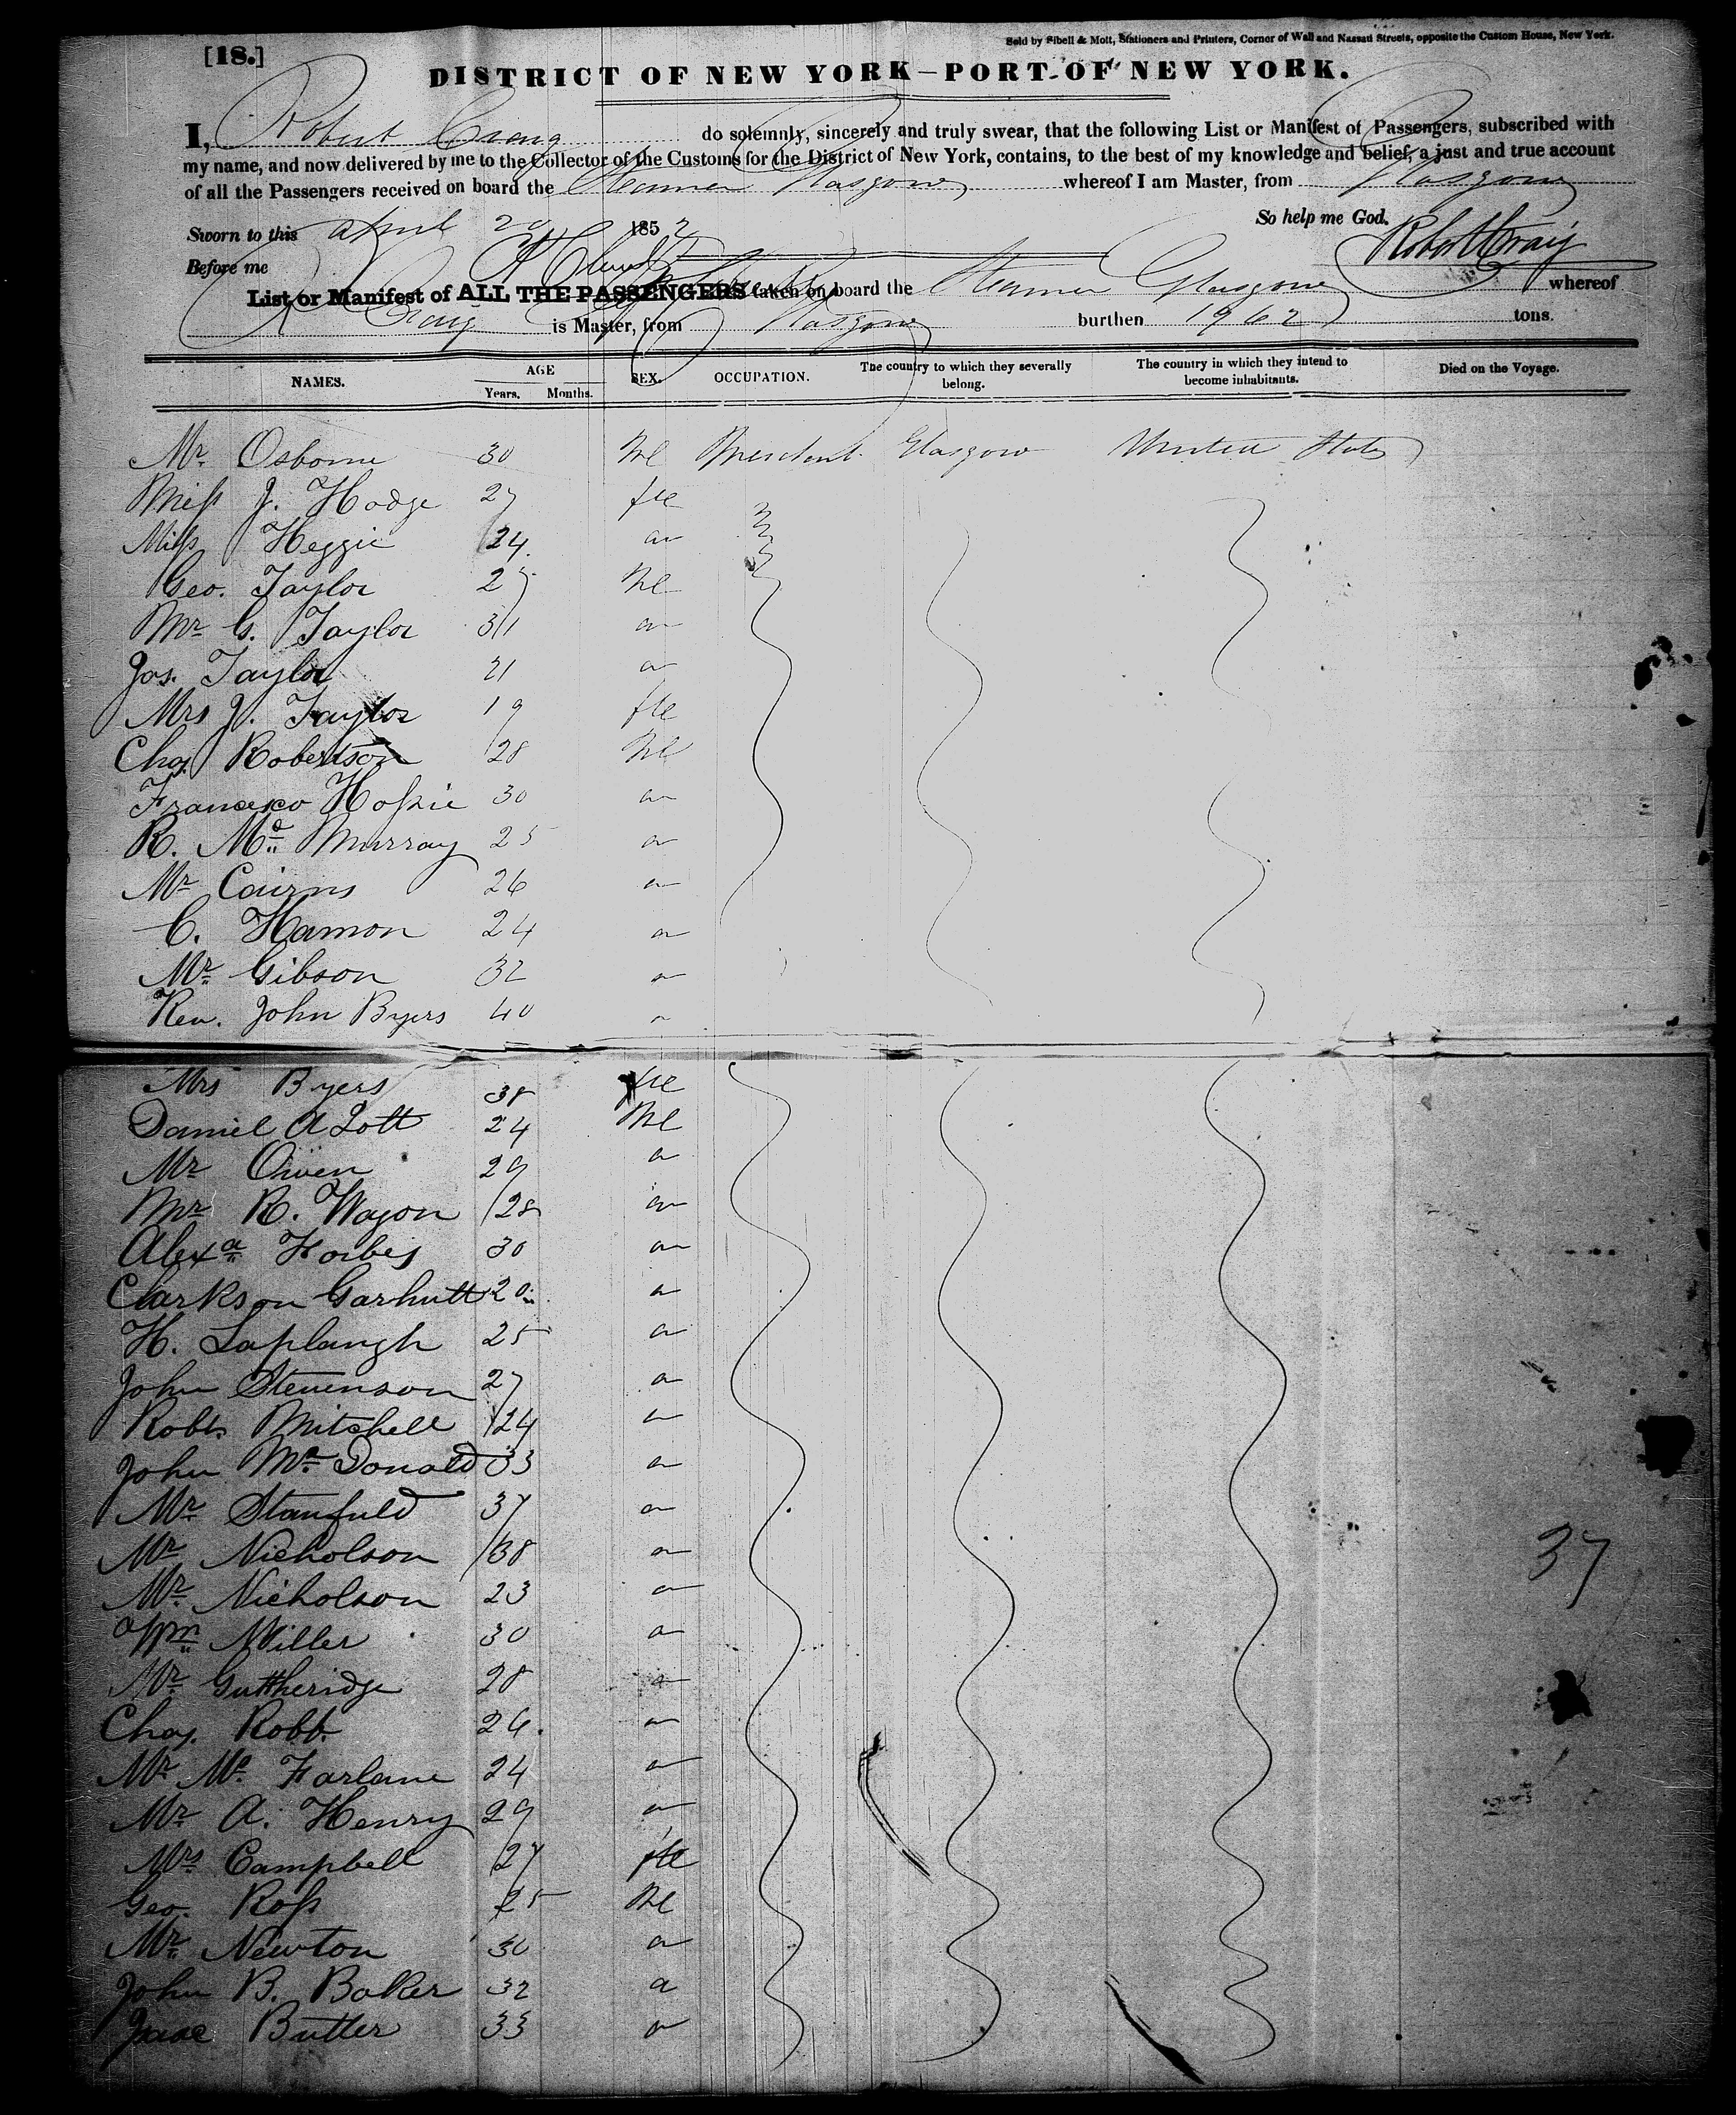 [18.]
Sold by Sibell & Mott, Stationers and Printers, Corner of Wall and Nassau Streets, opposite the Custom House, New York.
DISTRICT OF NEW YORK—PORT OF NEW YORK.
I, Robert Craig do solemnly, sincerely and truly swear, that the following List or Manifest of Passengers, subscribed with
my name, and now delivered by me to the Collector of the Customs for the District of New York, contains, to the best of my knowledge and belief, a just and true account
of all the Passengers received on board the Steamer Glasgow whereof I am Master, from Glasgow
So help me God.
Sworn to this April 20 1852 Robert Craig
Before me
List or Manifest of ALL THE PASSENGERS taken on board the Steamer Glasgow whereof
R Craig is Master, from Glasgow burthen 1962 tons.
NAMES. AGE Years. Months. SEX. OCCUPATION. The country to which they severally belong. The country in which they intend to become inhabitants. Died on the Voyage.
Mr. Osborne 30 Ml Merchant Glasgow United States
Miss J. Hodge 27 fle
Miss Heggie 24 "
Geo. Taylor 25 Ml
Mr G. Taylor 31 "
Jos. Taylor 21 "
Mrs J. Taylor 19 fle
Chas Robertson 28 Ml
Francisco Hossie 30 "
R. Mc Murray 25 "
Mr Cairns 26 "
C. Hamon 24 "
Mr Gibson 32 "
Rev. John Byers 40 "
Mrs Byers 38 fle
Daniel A Lott 24 Ml
Mr Owen 29 "
Mr R. Wagon 28 "
Alexa Forbes 30 "
Clarkson Garhutt 20 "
H. Laplaugh 25 "
John Stevenson 27 "
Robt. Mitchell 24 "
John Mc Donald 33 "
Mr Stanfield 37 "
Mr Nicholson 38 "
37
Mr Nicholson 23 "
Wm Miller 30 "
Mr Guttheridge 28 "
Chas. Robb. 26 "
Mr Mc Farlane 24 "
Mr A. Henry 29 "
Mrs Campbell 27 fle
Geo. Ross 25 Ml
Mr Newton 30 "
John B. Baker 32 "
Butler 33 "